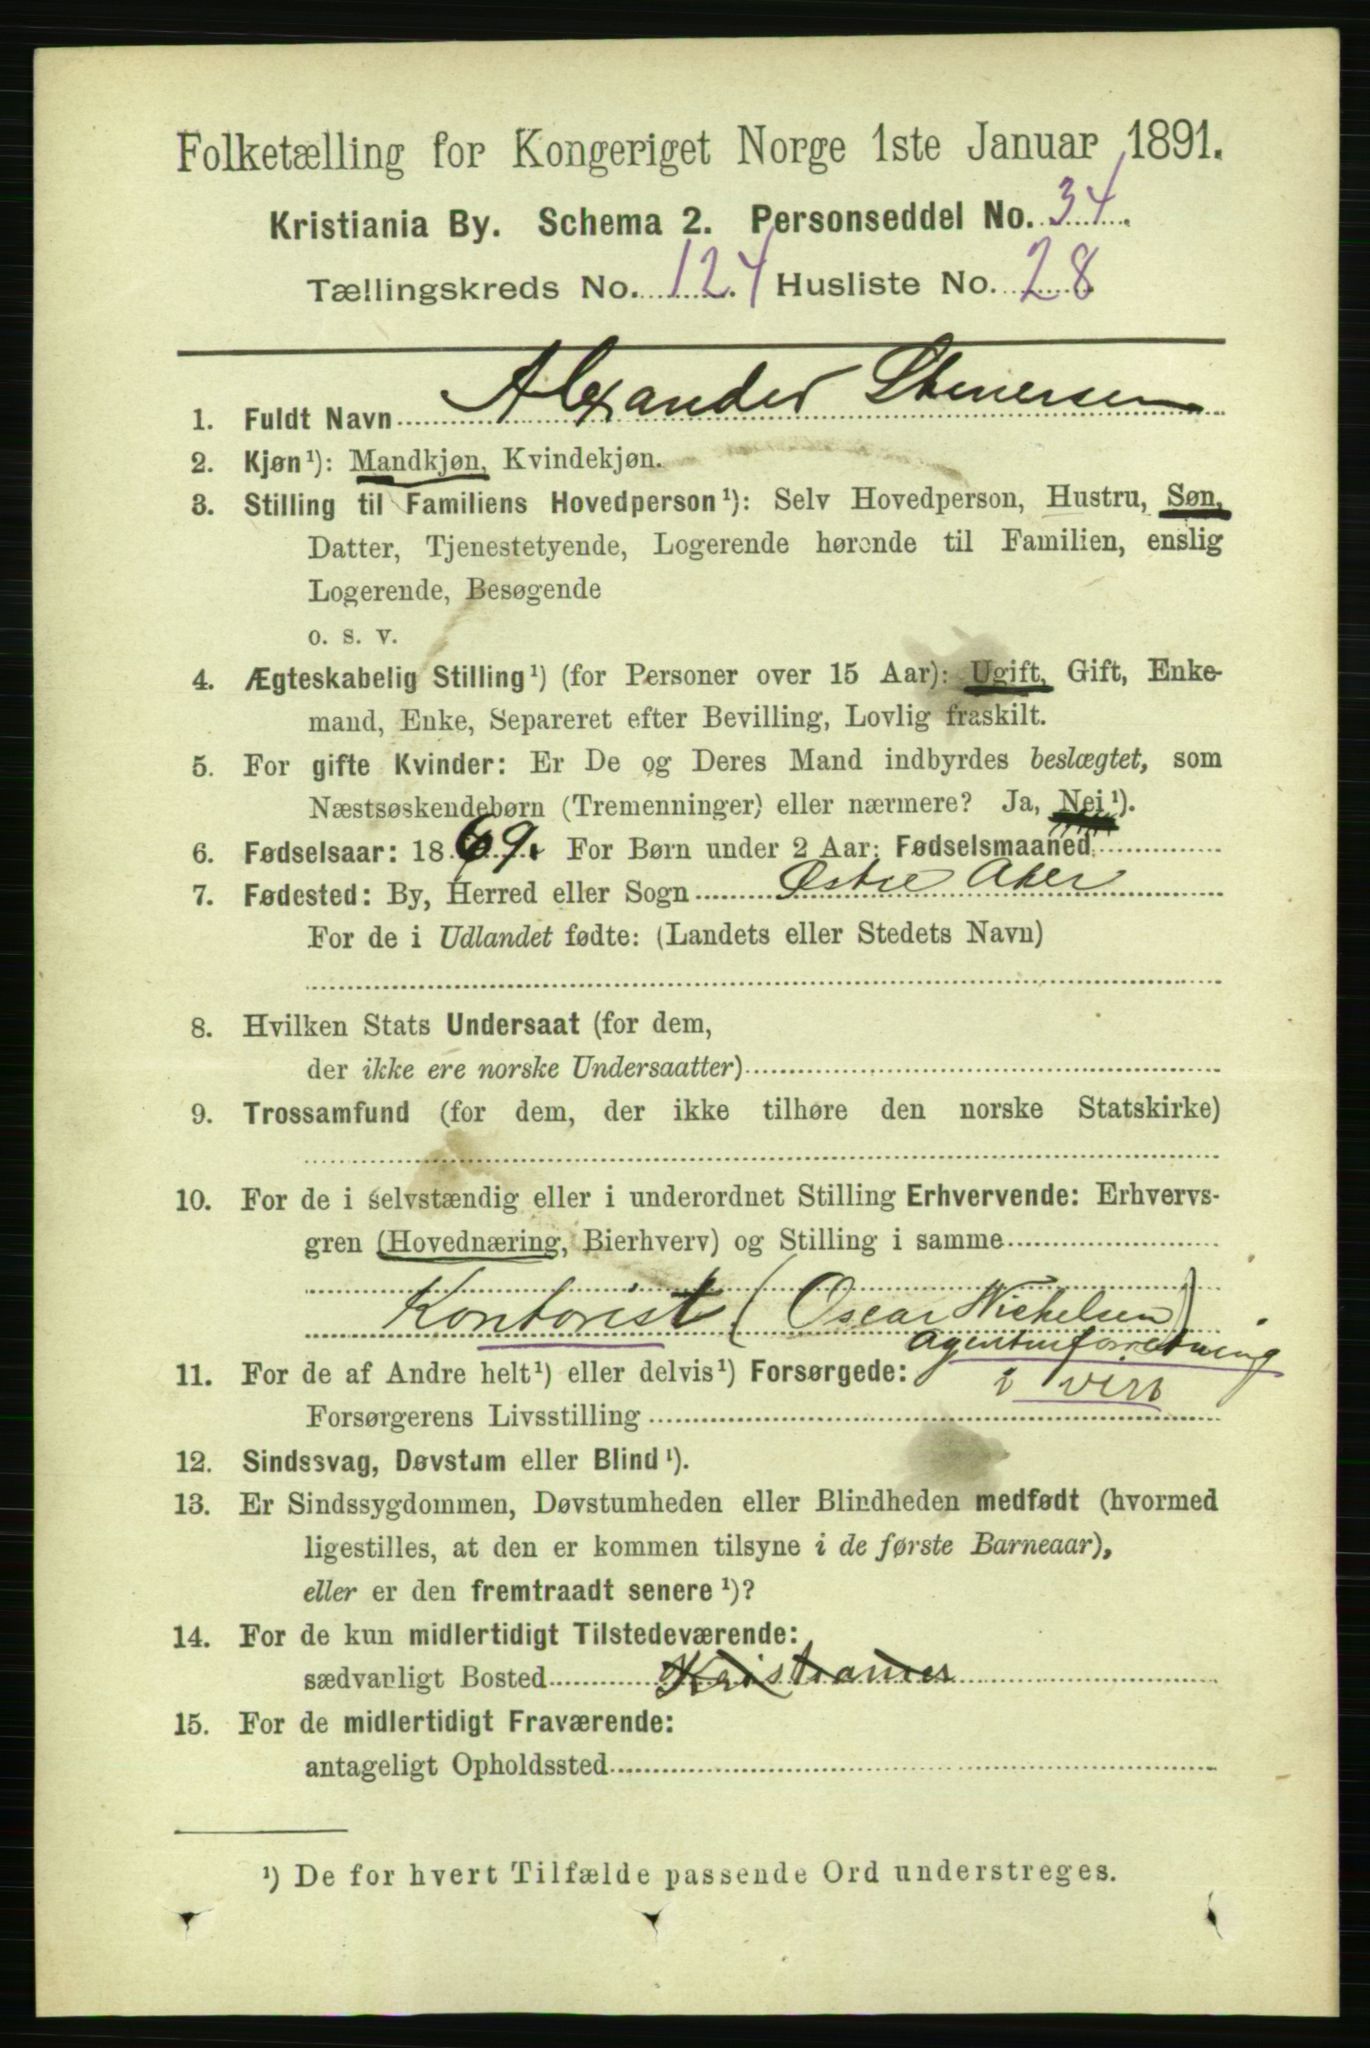 Folketælling for Kongeriget Norge 1ste Januar 1891.
Kristiania By. Schema 2. Personseddel No. 34.
Tællingskreds No. 124. Husliste No. 28
1. Fuldt Navn Alexander Stenersen
2. Kjøn¹): Mandkjøn, Kvindekjøn.
3. Stilling til Familiens Hovedperson¹): Selv Hovedperson, Hustru, Søn,
Datter, Tjenestetyende, Logerende hørende til Familien, enslig
Logerende, Besøgende
o. s. v.
4. Ægteskabelig Stilling¹) (for Personer over 15 Aar): Ugift, Gift, Enke-
mand, Enke, Separeret efter Bevilling, Lovlig fraskilt.
5. For gifte Kvinder: Er De og Deres Mand indbyrdes beslægtet, som
Næstsøskendebørn (Tremenninger) eller nærmere? Ja, Nej¹).
6. Fødselsaar: 1869. For Børn under 2 Aar: Fødselsmaaned
7. Fødested: By, Herred eller Sogn Østre Aker
For de i Udlandet fødte: (Landets eller Stedets Navn)
8. Hvilken Stats Undersaat (for dem,
der ikke ere norske Undersaatter)
9. Trossamfund (for dem, der ikke tilhøre den norske Statskirke)
10. For de i selvstændig eller i underordnet Stilling Erhvervende: Erhvervs-
gren (Hovednæring, Bierhverv) og Stilling i samme
Kontorist (Oscar Nickelsen)
Agenturforretning
11. For de af Andre helt¹) eller delvis¹) Forsørgede: i
Forsørgerens Livsstilling
12. Sindssvag, Døvstum eller Blind¹).
13. Er Sindssygdommen, Døvstumheden eller Blindheden medfødt (hvormed
ligestilles, at den er kommen tilsyne i de første Barneaar),
eller er den fremtraadt senere¹)?
14. For de kun midlertidigt Tilstedeværende:
sædvanligt Bosted Kristiania
15. For de midlertidigt Fraværende:
antageligt Opholdssted
¹) De for hvert Tilfælde passende Ord understreges.